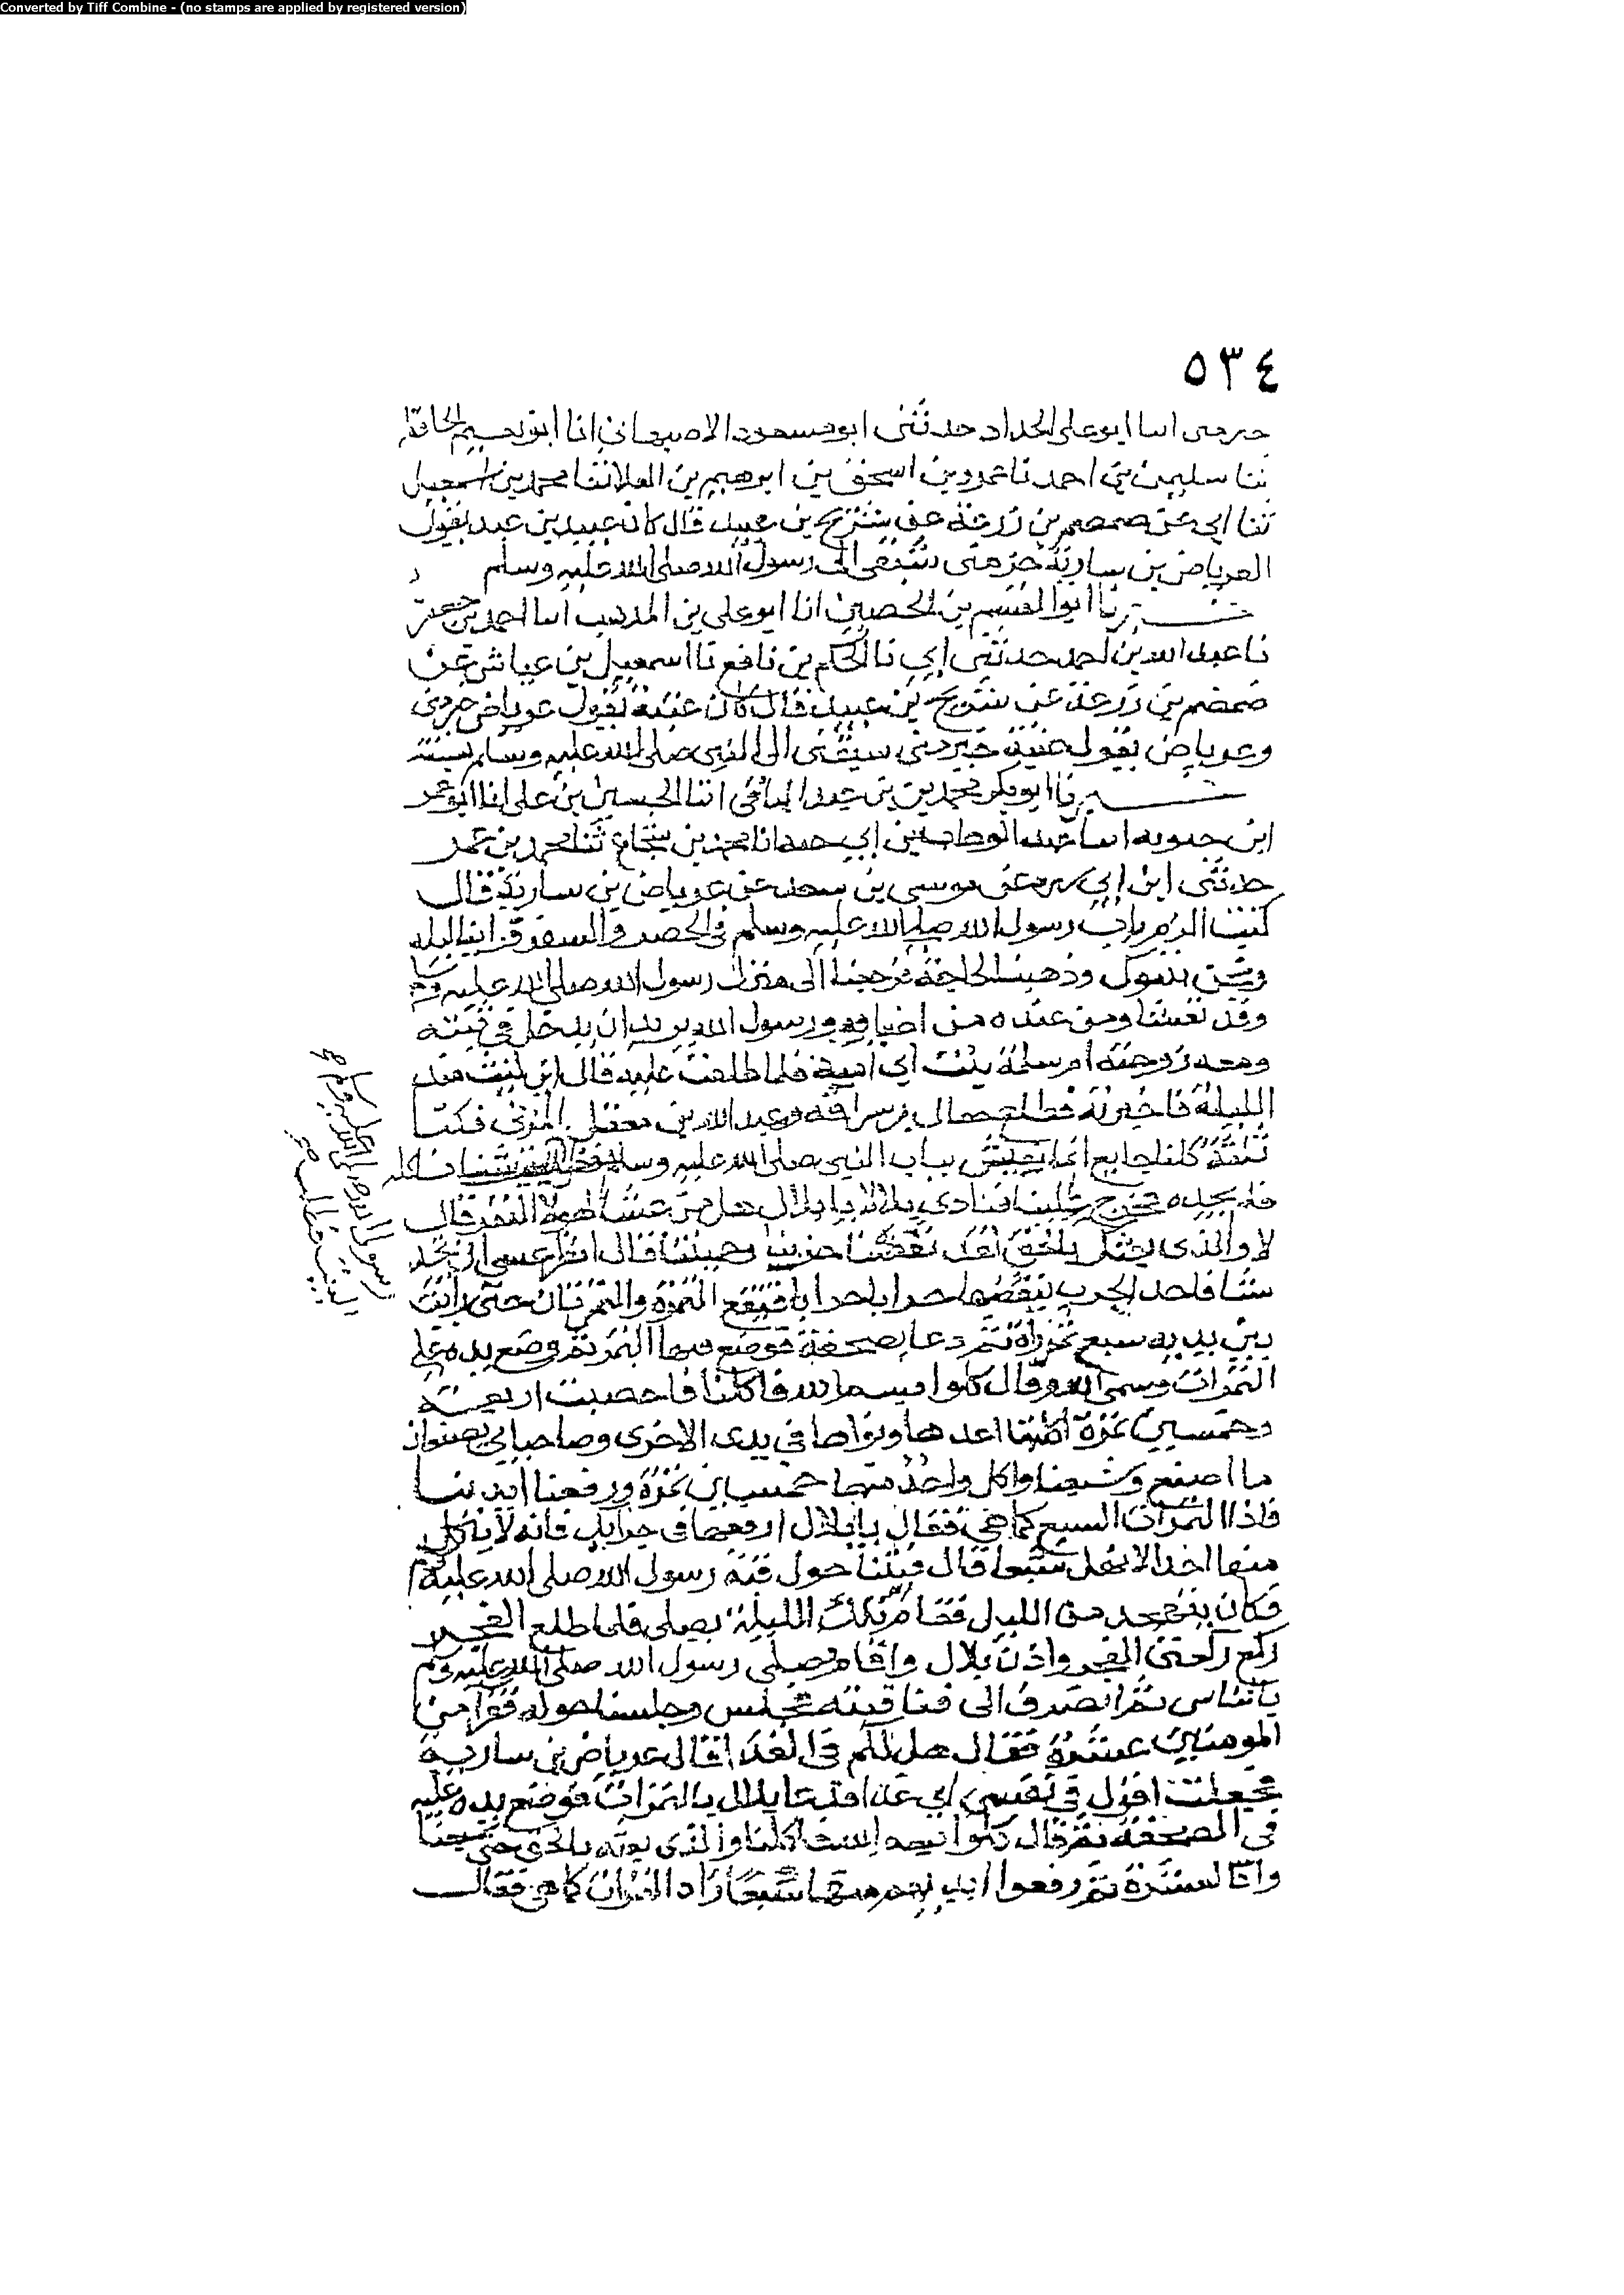 Converted by Tiff Combine - (no stamps are applied by registered version)
٥٣٤
خير مني انبا ابو علي الحداد حدثني ابو مسعود الاصبهاني انا ابو نعيم الحافظ
ثنا سليمن بن احمد نا عمرو بن اسحق بن ابرهيم بن العلا ثنا محمد بن اسمعيل
ثنا ابي عن ضمضم بن زرعة عن شريح بن عبيد قال كان عتبة بن عبد يقول
العرباض بن سارية خير مني سبقني الى رسول الله صلى الله عليه وسلم
نا ابو القسم بن الحصين انا ابو علي بن المذهب انبا احمد بن جعفر
نا عبد الله بن احمد حدثني ابي نا الحكم بن نافع نا اسمعيل بن عياش عن
ضمضم بن زرعة عن شريح بن عبيد قال كان عتبة يقول عرباض خير مني
وعرباض يقول عتبة خير مني سبقني الى النبي صلى الله عليه وسلم بسنة
نا ابو بكر محمد بن عبد الباقي انا الحسين بن علي انا ابو عمر
ابن حيويه انبا عبد الوهاب بن ابي حية انا محمد بن شجاع ثنا محمد بن عمر
حدثني ابن ابي سبرة عن موسى بن سعد عن عرباض بن سارية قال
كنت الزم باب رسول الله صلى الله عليه وسلم في الحضر والسفر فراينا ليلة
ونحن بتبوك وذهبنا لحاجة فرجعنا الى منزل رسول الله صلى الله عليه وسلم
وقد تعشا ومن عنده من اضيافه ورسول الله يريد ان يدخل في قبته
ومعه زوجته ام سلمة بنت ابي امية فلما طلعت عليه قال اين كنت منذ
الليلة فاخبرته فطلع جعال بن سراقة وعبد الله بن مغفل المزني فكنا
ثلثة كلنا جايع انما نعيش بباب النبي صلى الله عليه وسلم
فلم يجده فخرج علينا فنادى بلالا يا بلال هل من عشا لهولا النفر قال
لا والذي بعثك بالحق لقد نفضنا جربنا وحمتنا قال انظر عسى ان تجد
شيا فاخذ الجرب ينفضها جرابا جرابا فتقع التمرة والتمرتان حتى رايت
بين يديه سبع تمرات ثم دعا بصحفة فوضع فيها التمر ثم وضع يده على
التمرات وسمى الله وقال كلوا بسم الله فاكلنا فاحصيت اربعة
وخمسين تمرة اكلتها اعدها ونواها في يدي الاخرى وصاحباي يصنعان
ما اصنع وشبعنا واكل واحد منهما خمسين تمرة ورفعنا ايدينا
فاذا التمرات السبع كما هي فقال يا بلال ارفعها في جرابك فانه لا ياكل
منها احد الا نهل شبعا قال فبتنا حول قبة رسول الله صلى الله عليه وسلم
فكان يتهجد من الليل فقام تلك الليلة يصلي فلما طلع الفجر
ركع ركعتي الفجر واذن بلال واقام فصلى رسول الله صلى الله عليه وسلم
بالناس ثم انصرف الى فنا قبته فجلس وجلسنا حوله فقرا من
المومنين عشرة فقال هل لكم في الغدا قال عرباض بن سارية
فجعلت اقول في نفسي اي غدا فدعا بلال بالتمرات فوضع يده عليه
في الصحفة ثم قال كلوا بسم الله فاكلنا والذي بعثه بالحق حتى شبعنا
وانا لعشرة ثم رفعوا ايديهم منها شبعا واذا التمرات كما هي فقال
رسول الله صلى الله عليه وسلم
البيت فطلب